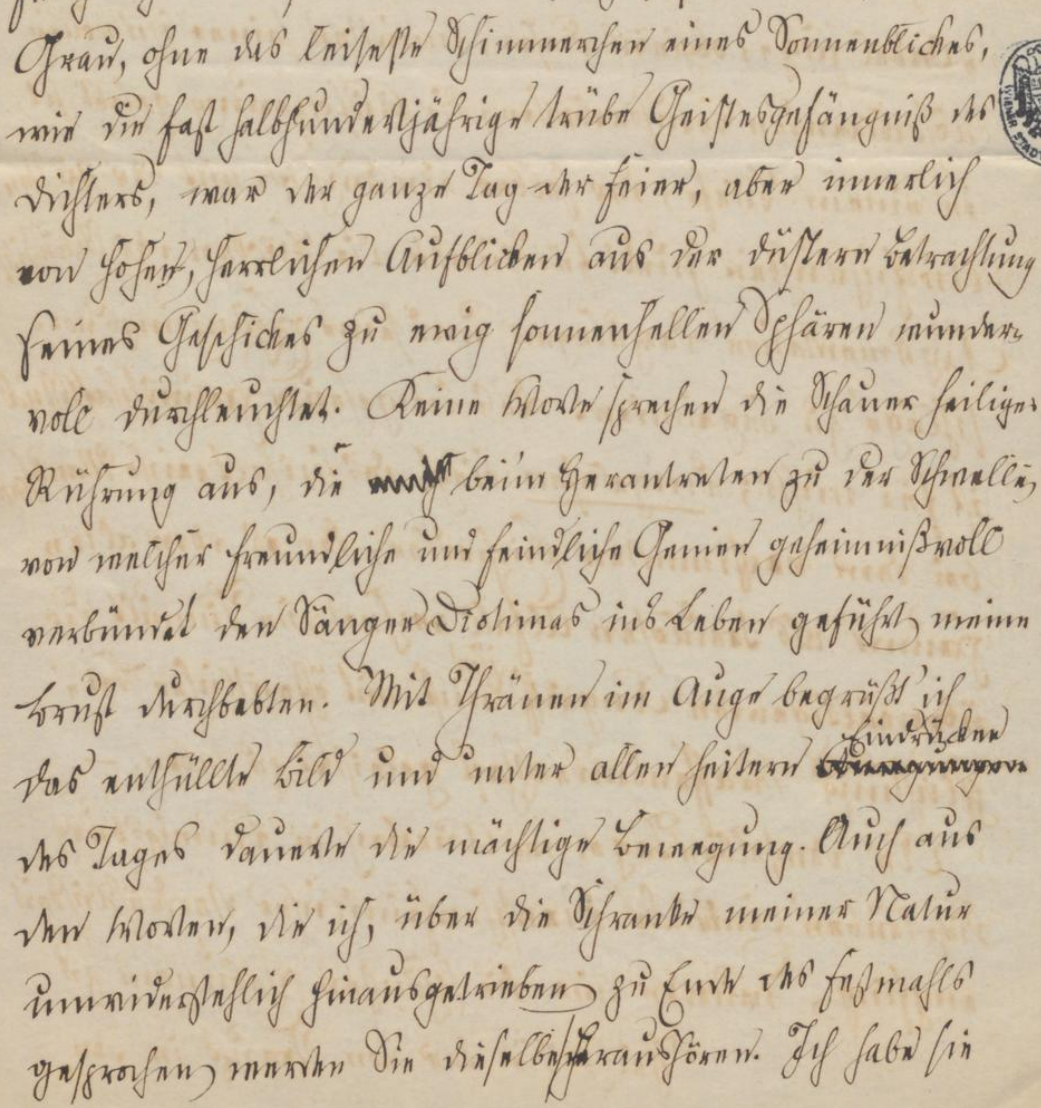 Grau, ohne das leiseste Schimmerchen eines Sonnenblickes,
wie die fast halbhundertjährige trübe Geistesgefängniß des
Dichters, war der ganze Tag der Feier, aber innerlich
von hohen, herrlichen Aufblicken aus der düstern Betrachtung
seines Geschickes zu ewig sonnenhellen Sphären wunder-
voll durchleuchtet. Keine Worte sprechen die Schauer heiliger
Rührung aus, die beim Herantreten zu der Schwelle,
von welcher freundliche und feindliche Genien geheimnißvoll
verbündet den Sänger Diotimas ins Leben geführt, meine
Brust durchbebten. Mit Thränen im Auge begrüßt' ich
das enthüllte Bild und unter allen heitern Eindrücken
des Tages dauerte die mächtige Bewegung. Auch aus
den Worten, die ich, über die Schranke meiner Natur
unwiderstehlich hinausgetrieben, zu Ende des Festmahls
gesprochen, werden Sie dieselbe heraushören. Ich habe sie